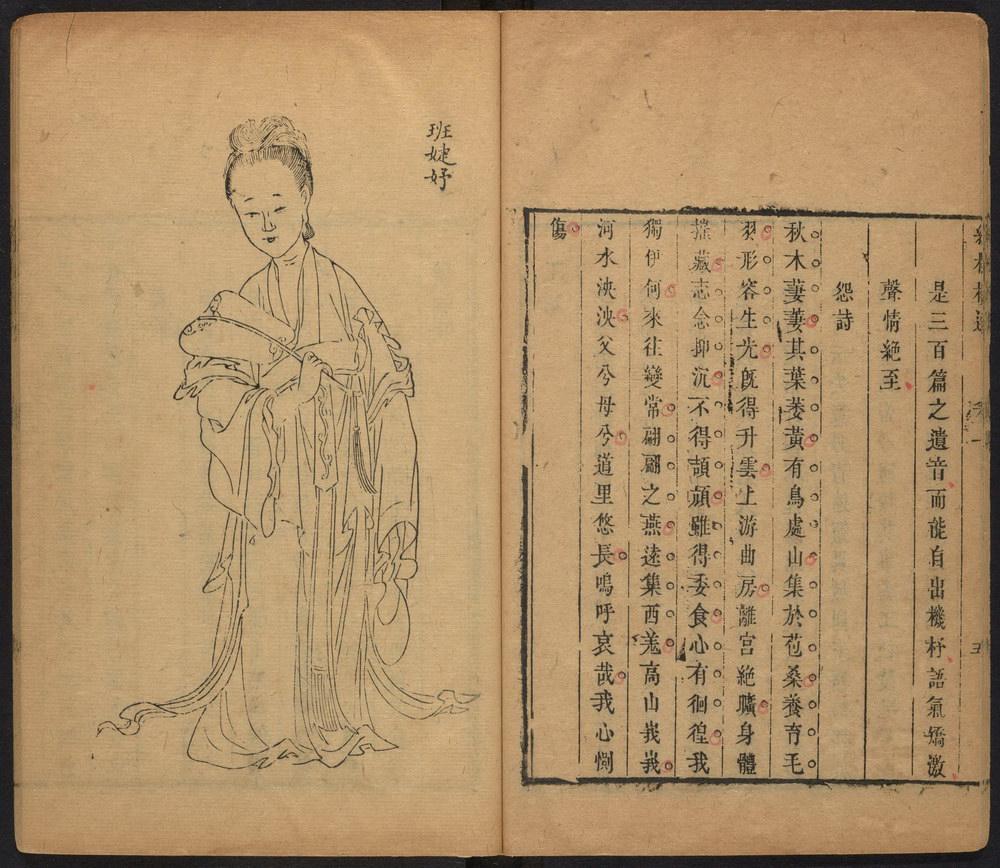 五
是三百篇之遺音而能自出機杼語氣矯激
聲情絶至
怨詩
秋木萋萋其葉萎黃有鳥處山集於苞桑養育毛
羽形容生光旣得升雲上游曲房離宮絶曠身體
摧藏志念抑沉不得頡頏雖得委食心有徊徨我
獨伊何來往變常翩翩之燕遠集西羗高山峩峩
河水泱泱父兮母兮道里悠長嗚呼哀哉我心惻
傷
班婕妤